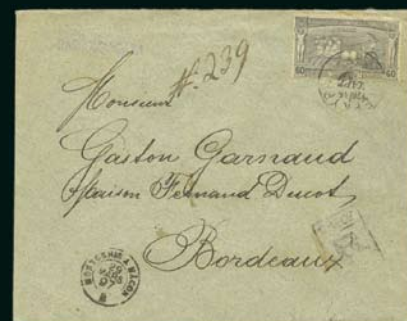 N° 239
60 60
Monsieur
Gaston Garnaud
Maison Fernand Ducot
Bordeaux
MACON